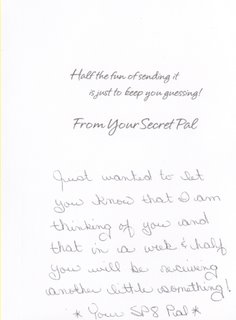 Half the fun of sending it
is just to keep you guessing!
From Your Secret Pal
Just wanted to let
you know that I am
thinking of you and
that in a week & half
you will be receiving
another little something!
* Your SP8 Pal *